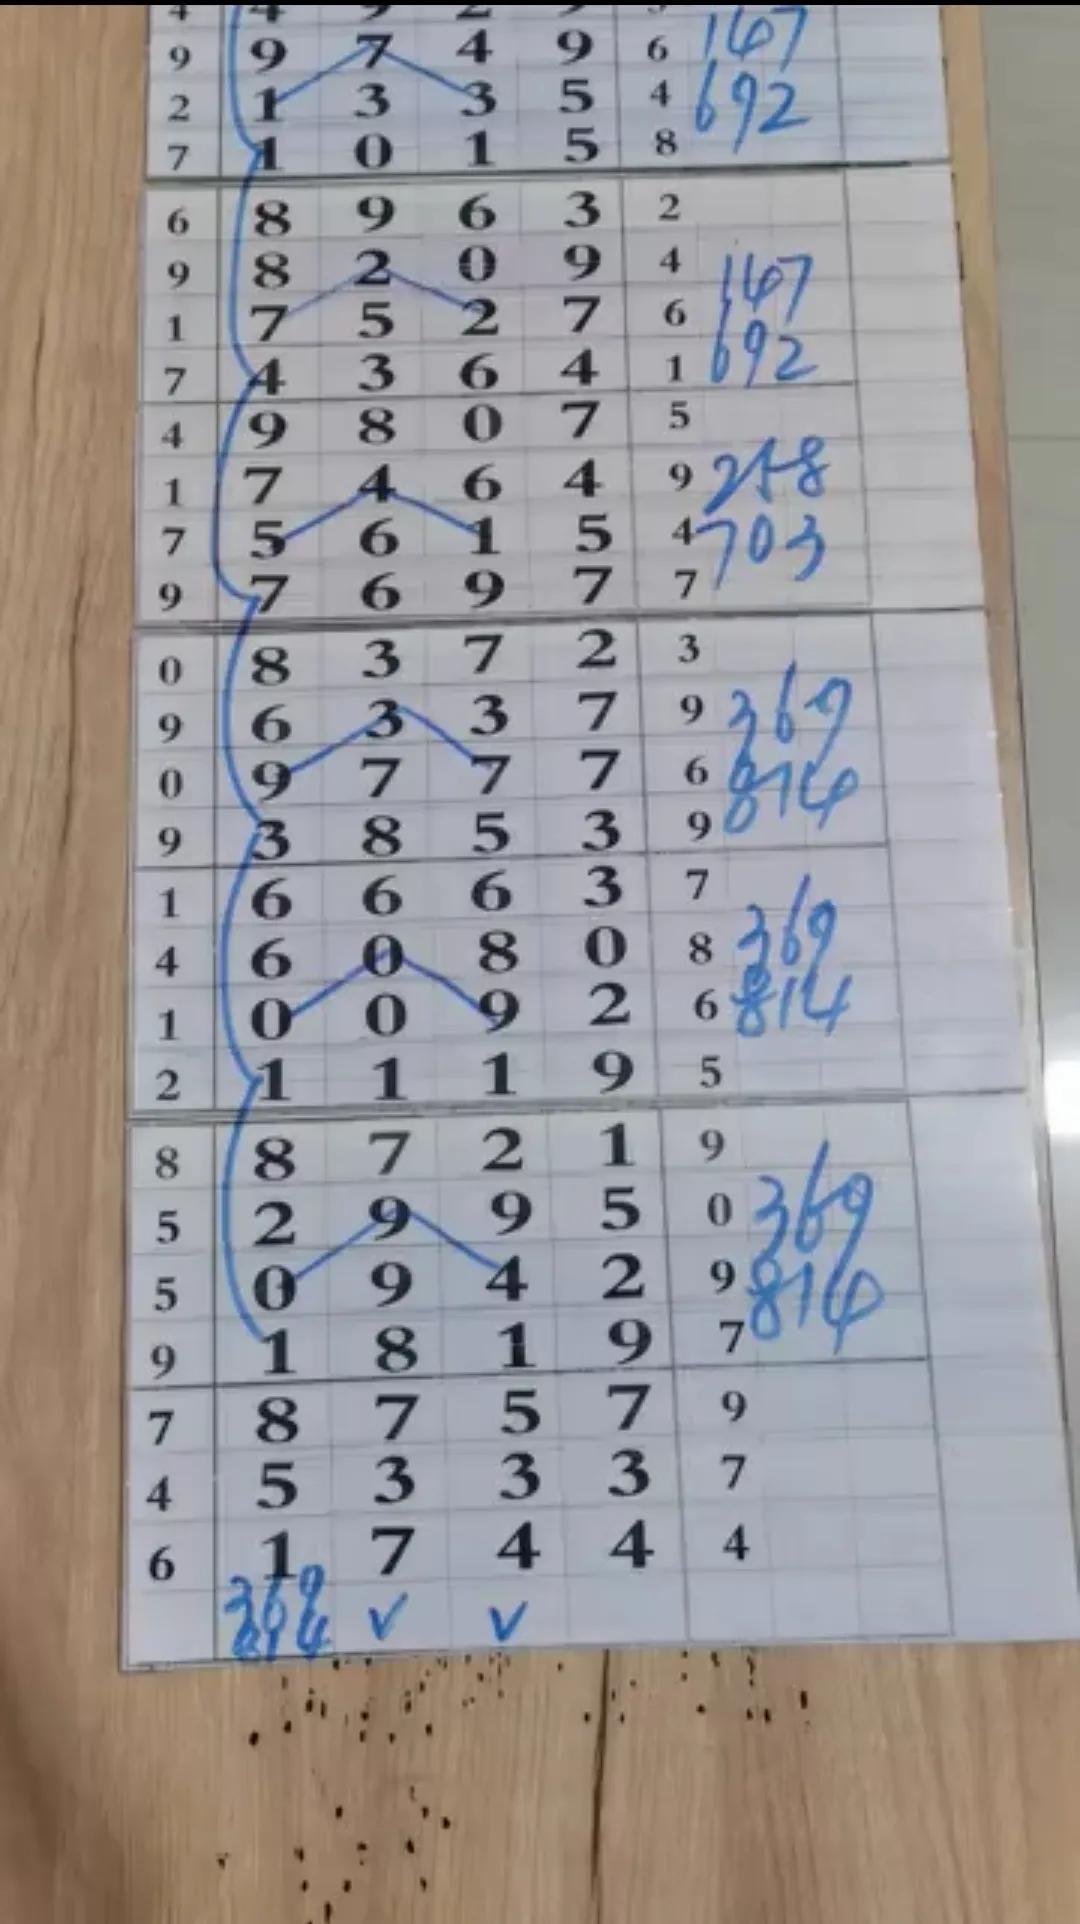 9 9 7 4 9 6 167
2 1 3 3 5 4 692
7 1 0 1 5 8
6 8 9 6 3 2
9 8 2 0 9 4 147
1 7 5 2 7 6 692
7 4 3 6 4 1
4 9 8 0 7 5
1 7 4 6 4 9 258
7 5 6 1 5 4 703
9 7 6 9 7 7
0 8 3 7 2 3
9 6 3 3 7 9 369
0 9 7 7 7 6 814
9 3 8 5 3 9
1 6 6 6 3 7
4 6 0 8 0 8 369
1 0 0 9 2 6 814
2 1 1 1 9 5
8 8 7 2 1 9
5 2 9 9 5 0 369
5 0 9 4 2 9 814
9 1 8 1 9 7
7 8 7 5 7 9
4 5 3 3 3 7
6 1 7 4 4 4
369 ✓ ✓
814